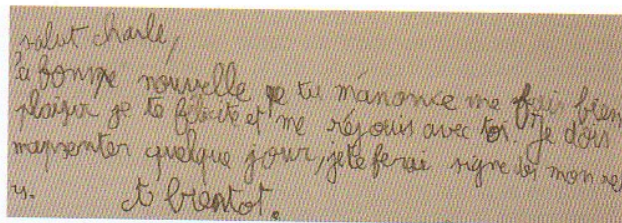 salut charle,
la bonne nouvelle que tu m'anonce me fais bien
plaisir je te félicite et me réjouis avec toi. Je dois
m'apsenter quelque jour, je te ferai signe dès mon re
a bientot.